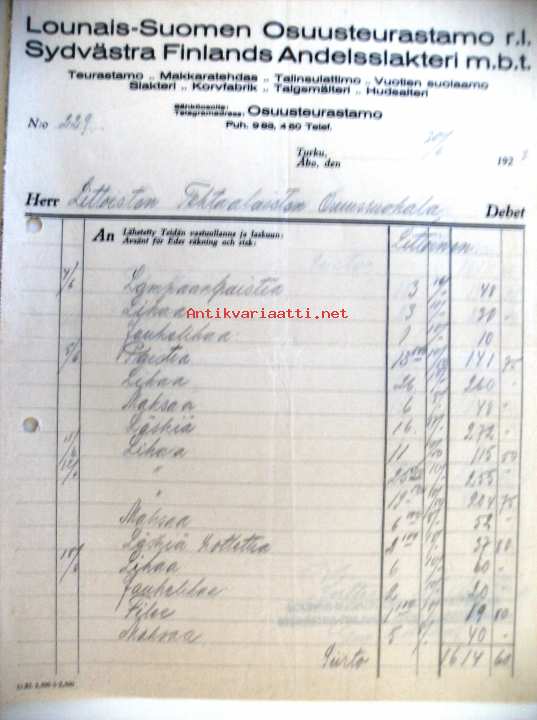 Lounais-Suomen Osuusteurastamo r.l.
Sydvästra Finlands Andelsslakteri m.b.t.
Teurastamo ,, Makkaratehdas ,, Talinsulattimo ,, Vuotien suolaamo
Slakteri ,, Korvfabrik ,, Talgsmälteri ,, Hudsalteri
Sähköosoite:
Telegramadress: Osuusteurastamo
Puh. 9 88, 4 60 Telef.
N:o 229
Turku,
Åbo, den 192
Herr Littoisten Tehtaalaisten Osuusruokala Debet
An Lähetetty Teidän vastuullanne ja laskuun:
Avsänt för Eder räkning och risk: Littoinen
Lihaa 3 120 -
Antikvariaatti.net
Jauhelihaa 1 10
Paistia 141 75
Lihaa 26 260 -
Maksaa 6 48 -
Läskiä 16 272 -
Lihaa 11 115 50
" 255 -
" 204 75
Maksaa 6 52 -
Läskiä 37 80
Lihaa 6 60 -
Jauheliha 2 20 -
Filee 19 80
Maksaa 5 40 -
Siirto 1614 60